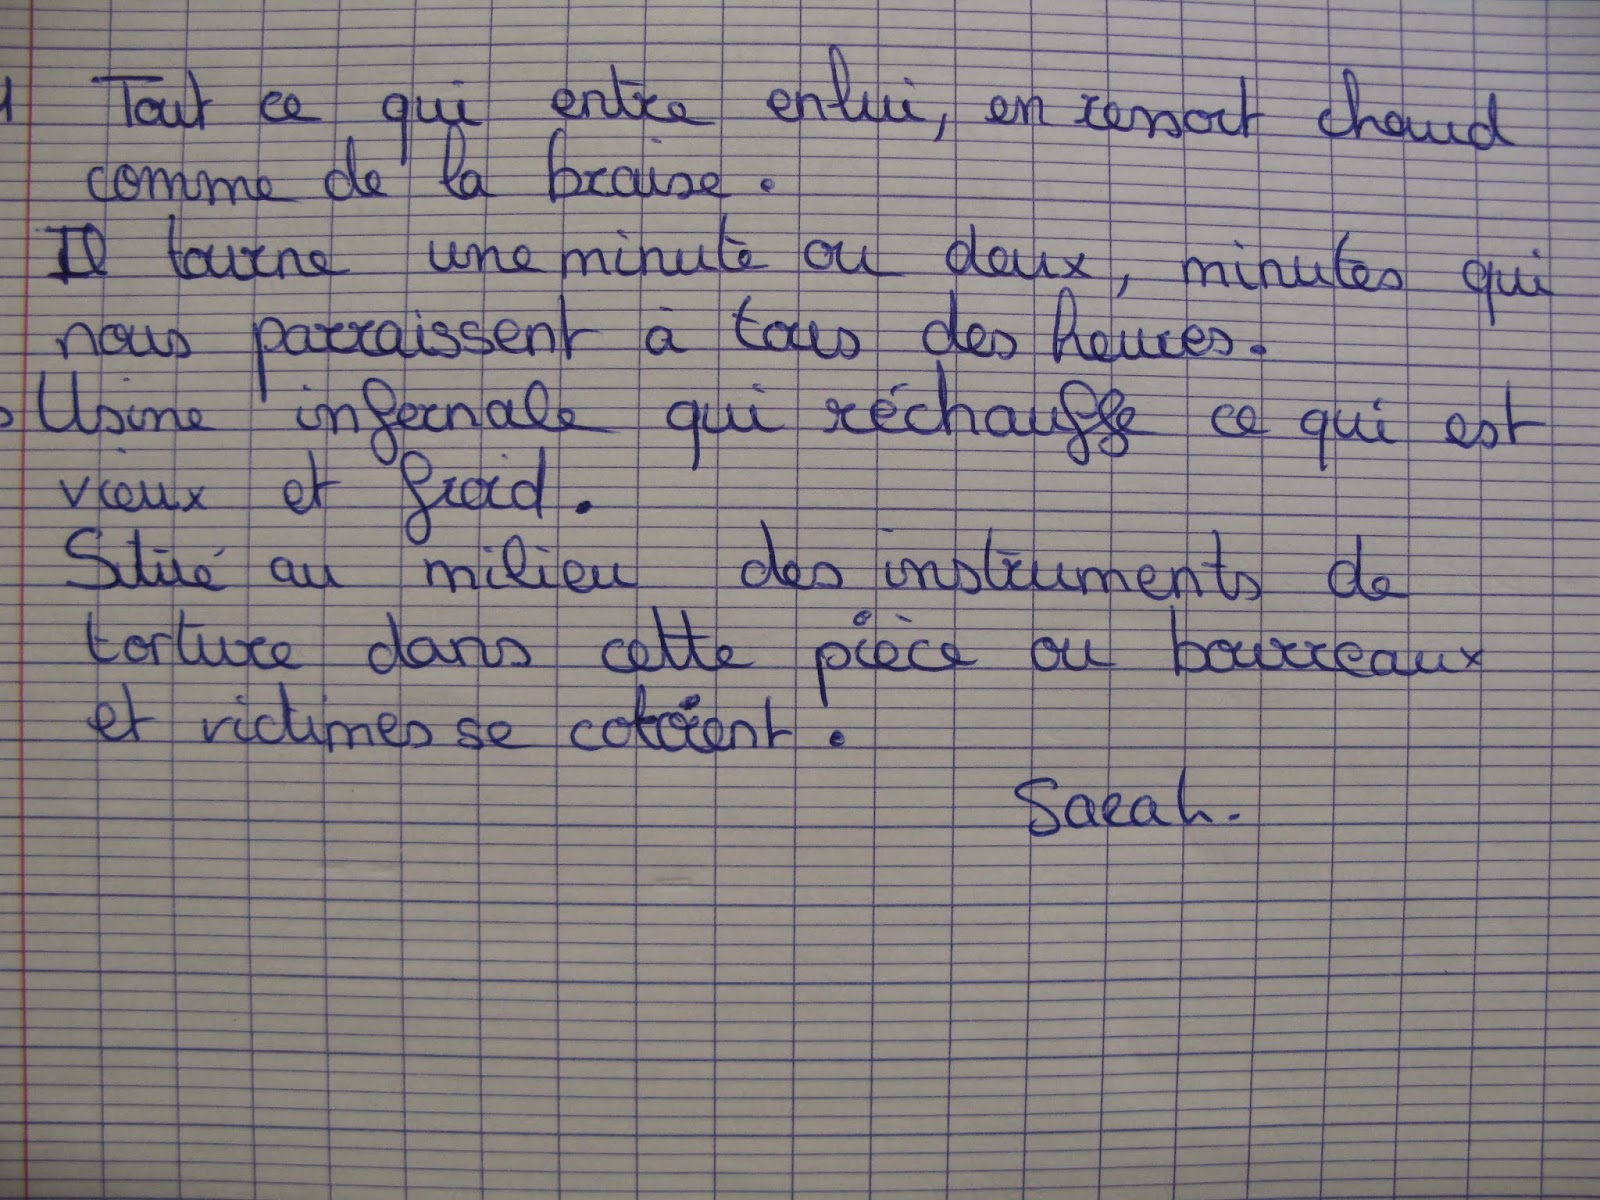 Tout ce qui entre enlui, en ressort chaud
comme de la braise.
Il tourne une minute ou deux, minutes qui
nous parraissent à tous des heures.
Usine infernale qui réchauffe ce qui est
vieux et froid.
Situé au milieu des instruments de
torture dans cette pièce ou bourreaux
et victimes se cotoient.
Sarah.